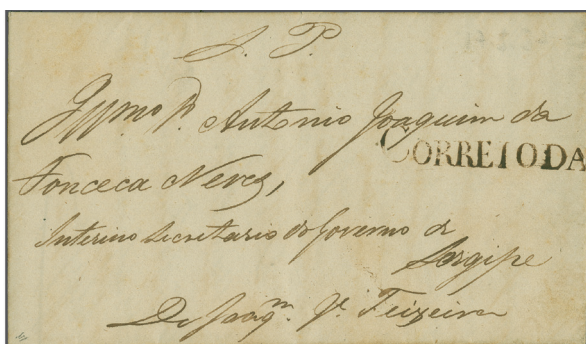 S. P.
Illmo Sr. Antonio Joaquim da
CORREIO DA
Fonceca Neves,
Interino Secretario do Governo de
Sergipe
De Joaqm. Je. Teixeira